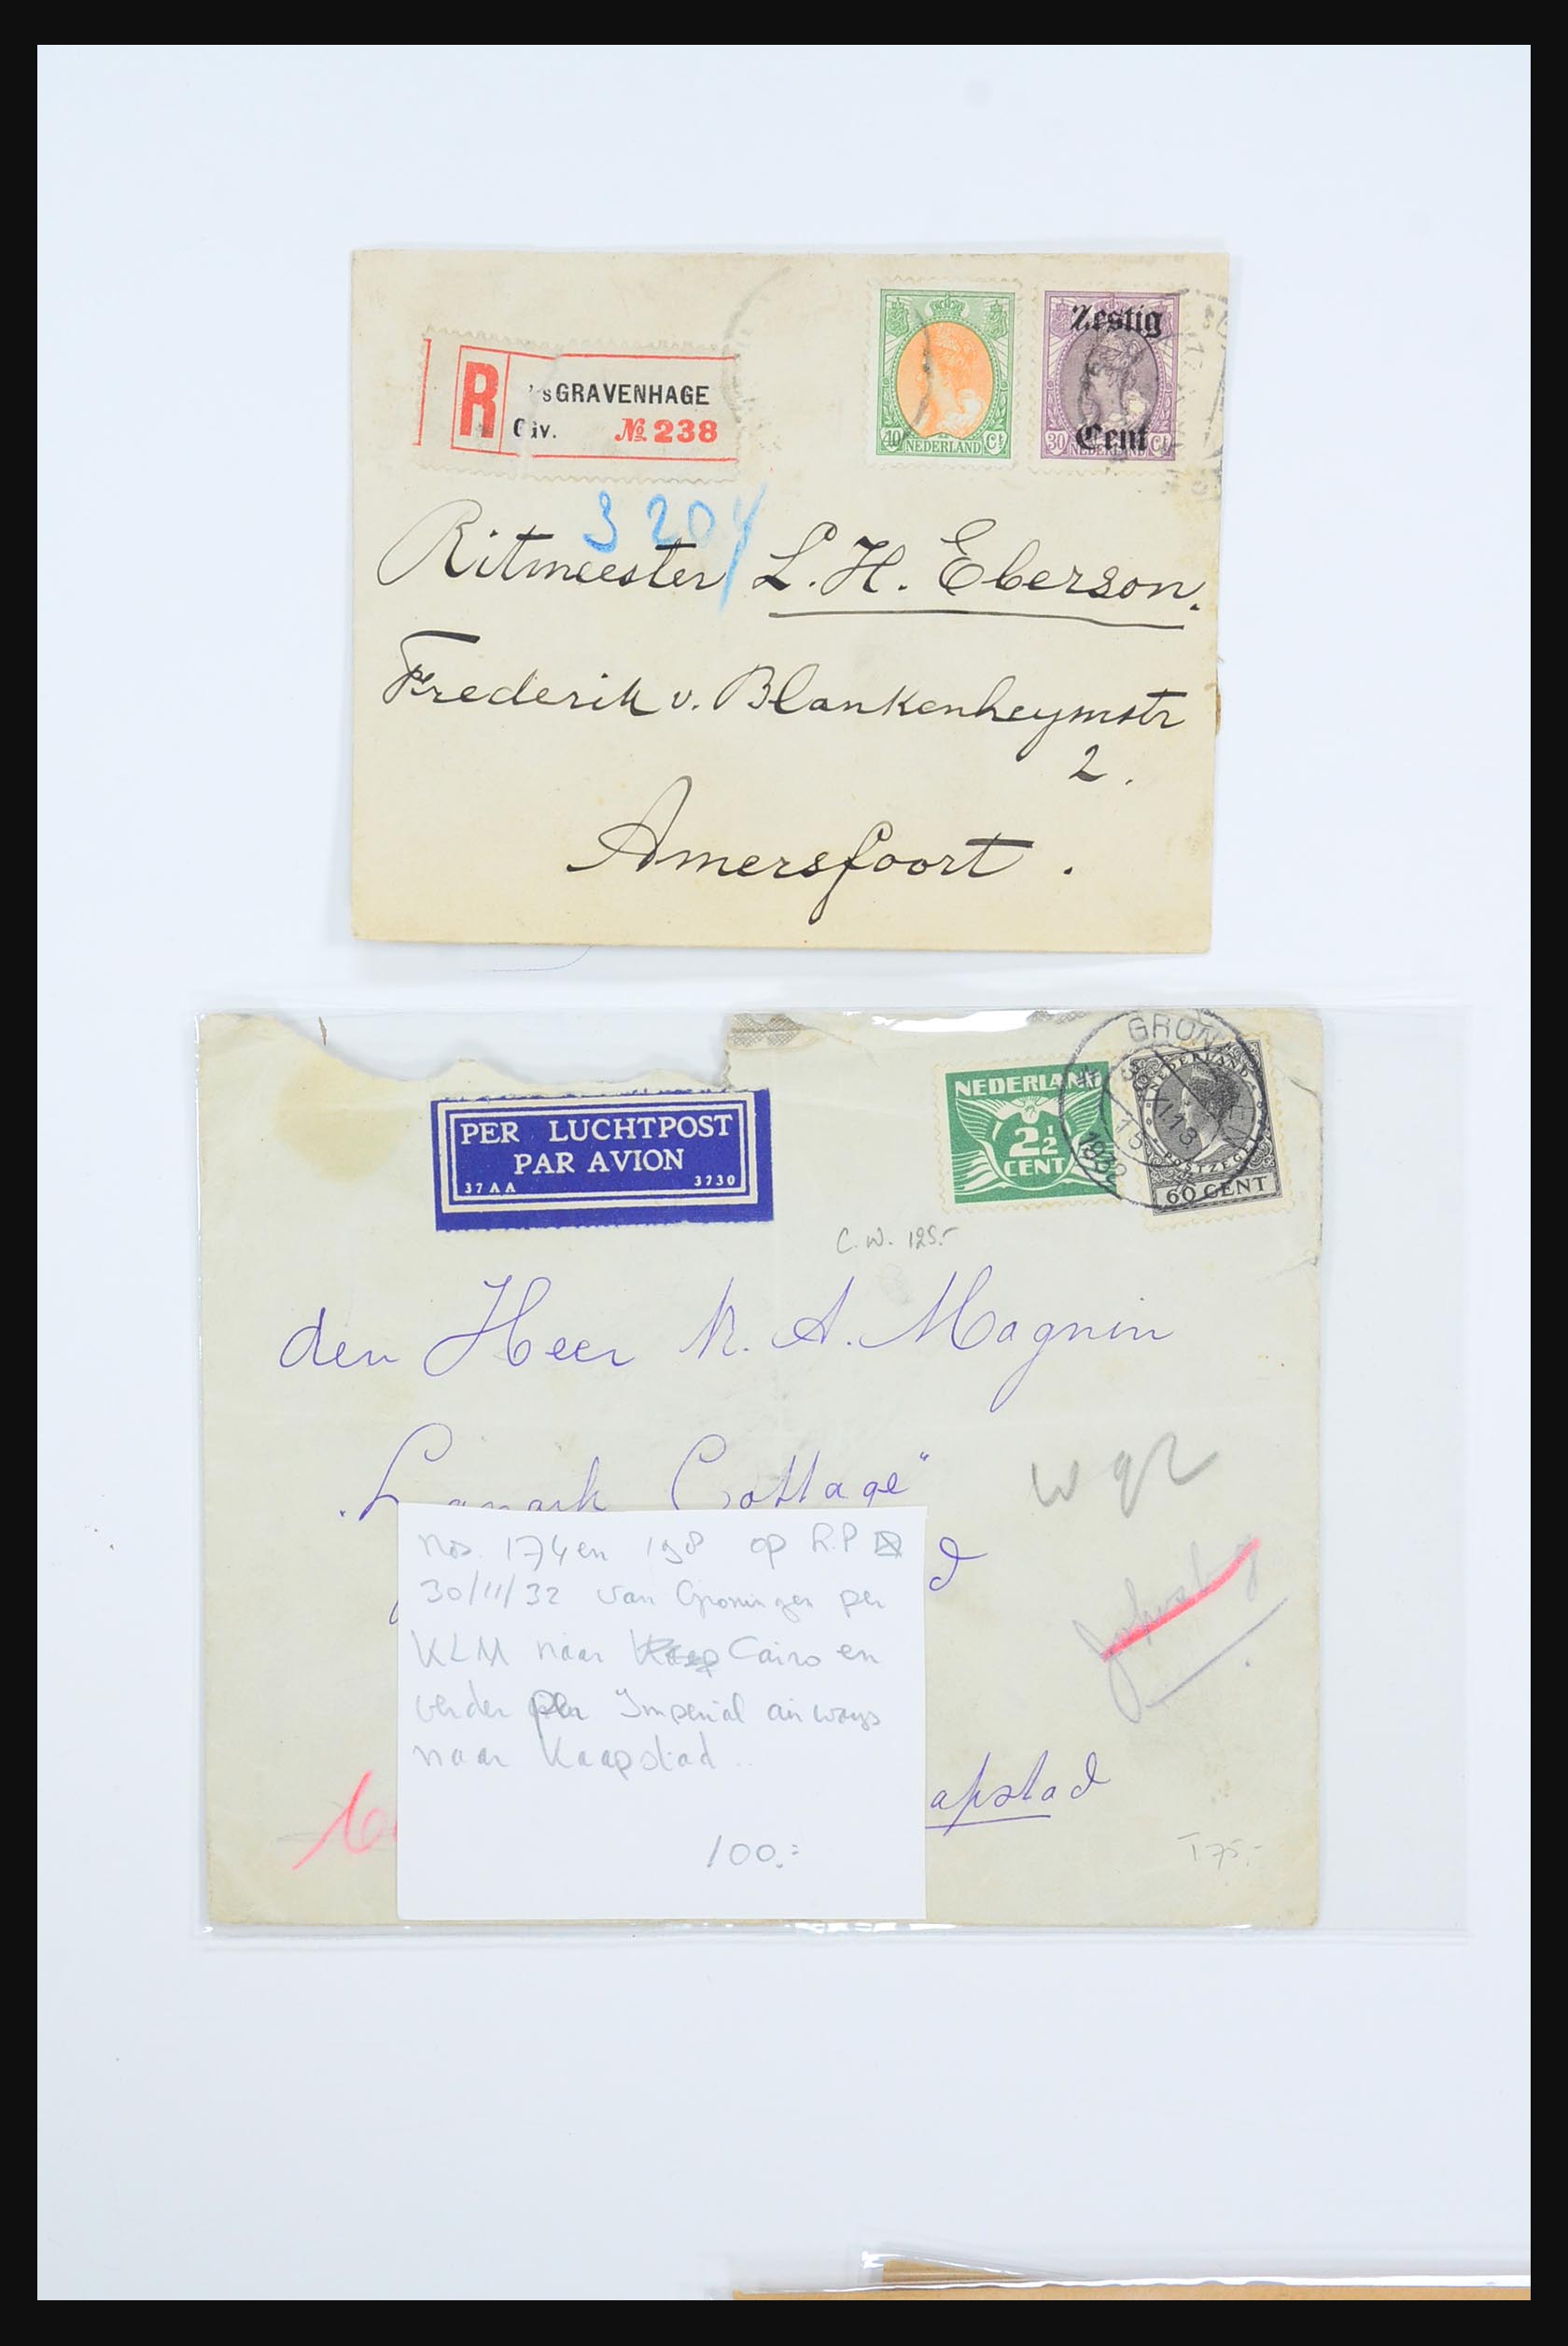 R 'sGRAVENHAGE
Gv. № 238
40 NEDERLAND Ct
Zestig
Cent
30 NEDERLAND Ct
3204
Ritmeester L. H. Eberson.
Frederik v. Blankenheymstr
2.
Amersfoort.
PER LUCHTPOST
PAR AVION
37AA 3730
NEDERLAND
2½
CENT
GRON
1932
NEDERLAND
POSTZEGEL
60 CENT
C.W. 125.-
den Heer M. A. Magnin
Cottage"
nos. 174 en 198 op R.P
30/11/32 van Groningen per
KLM naar Cairo en
verder per Imperial airways
naar Kaapstad.
100.=
apstad
T 75,-